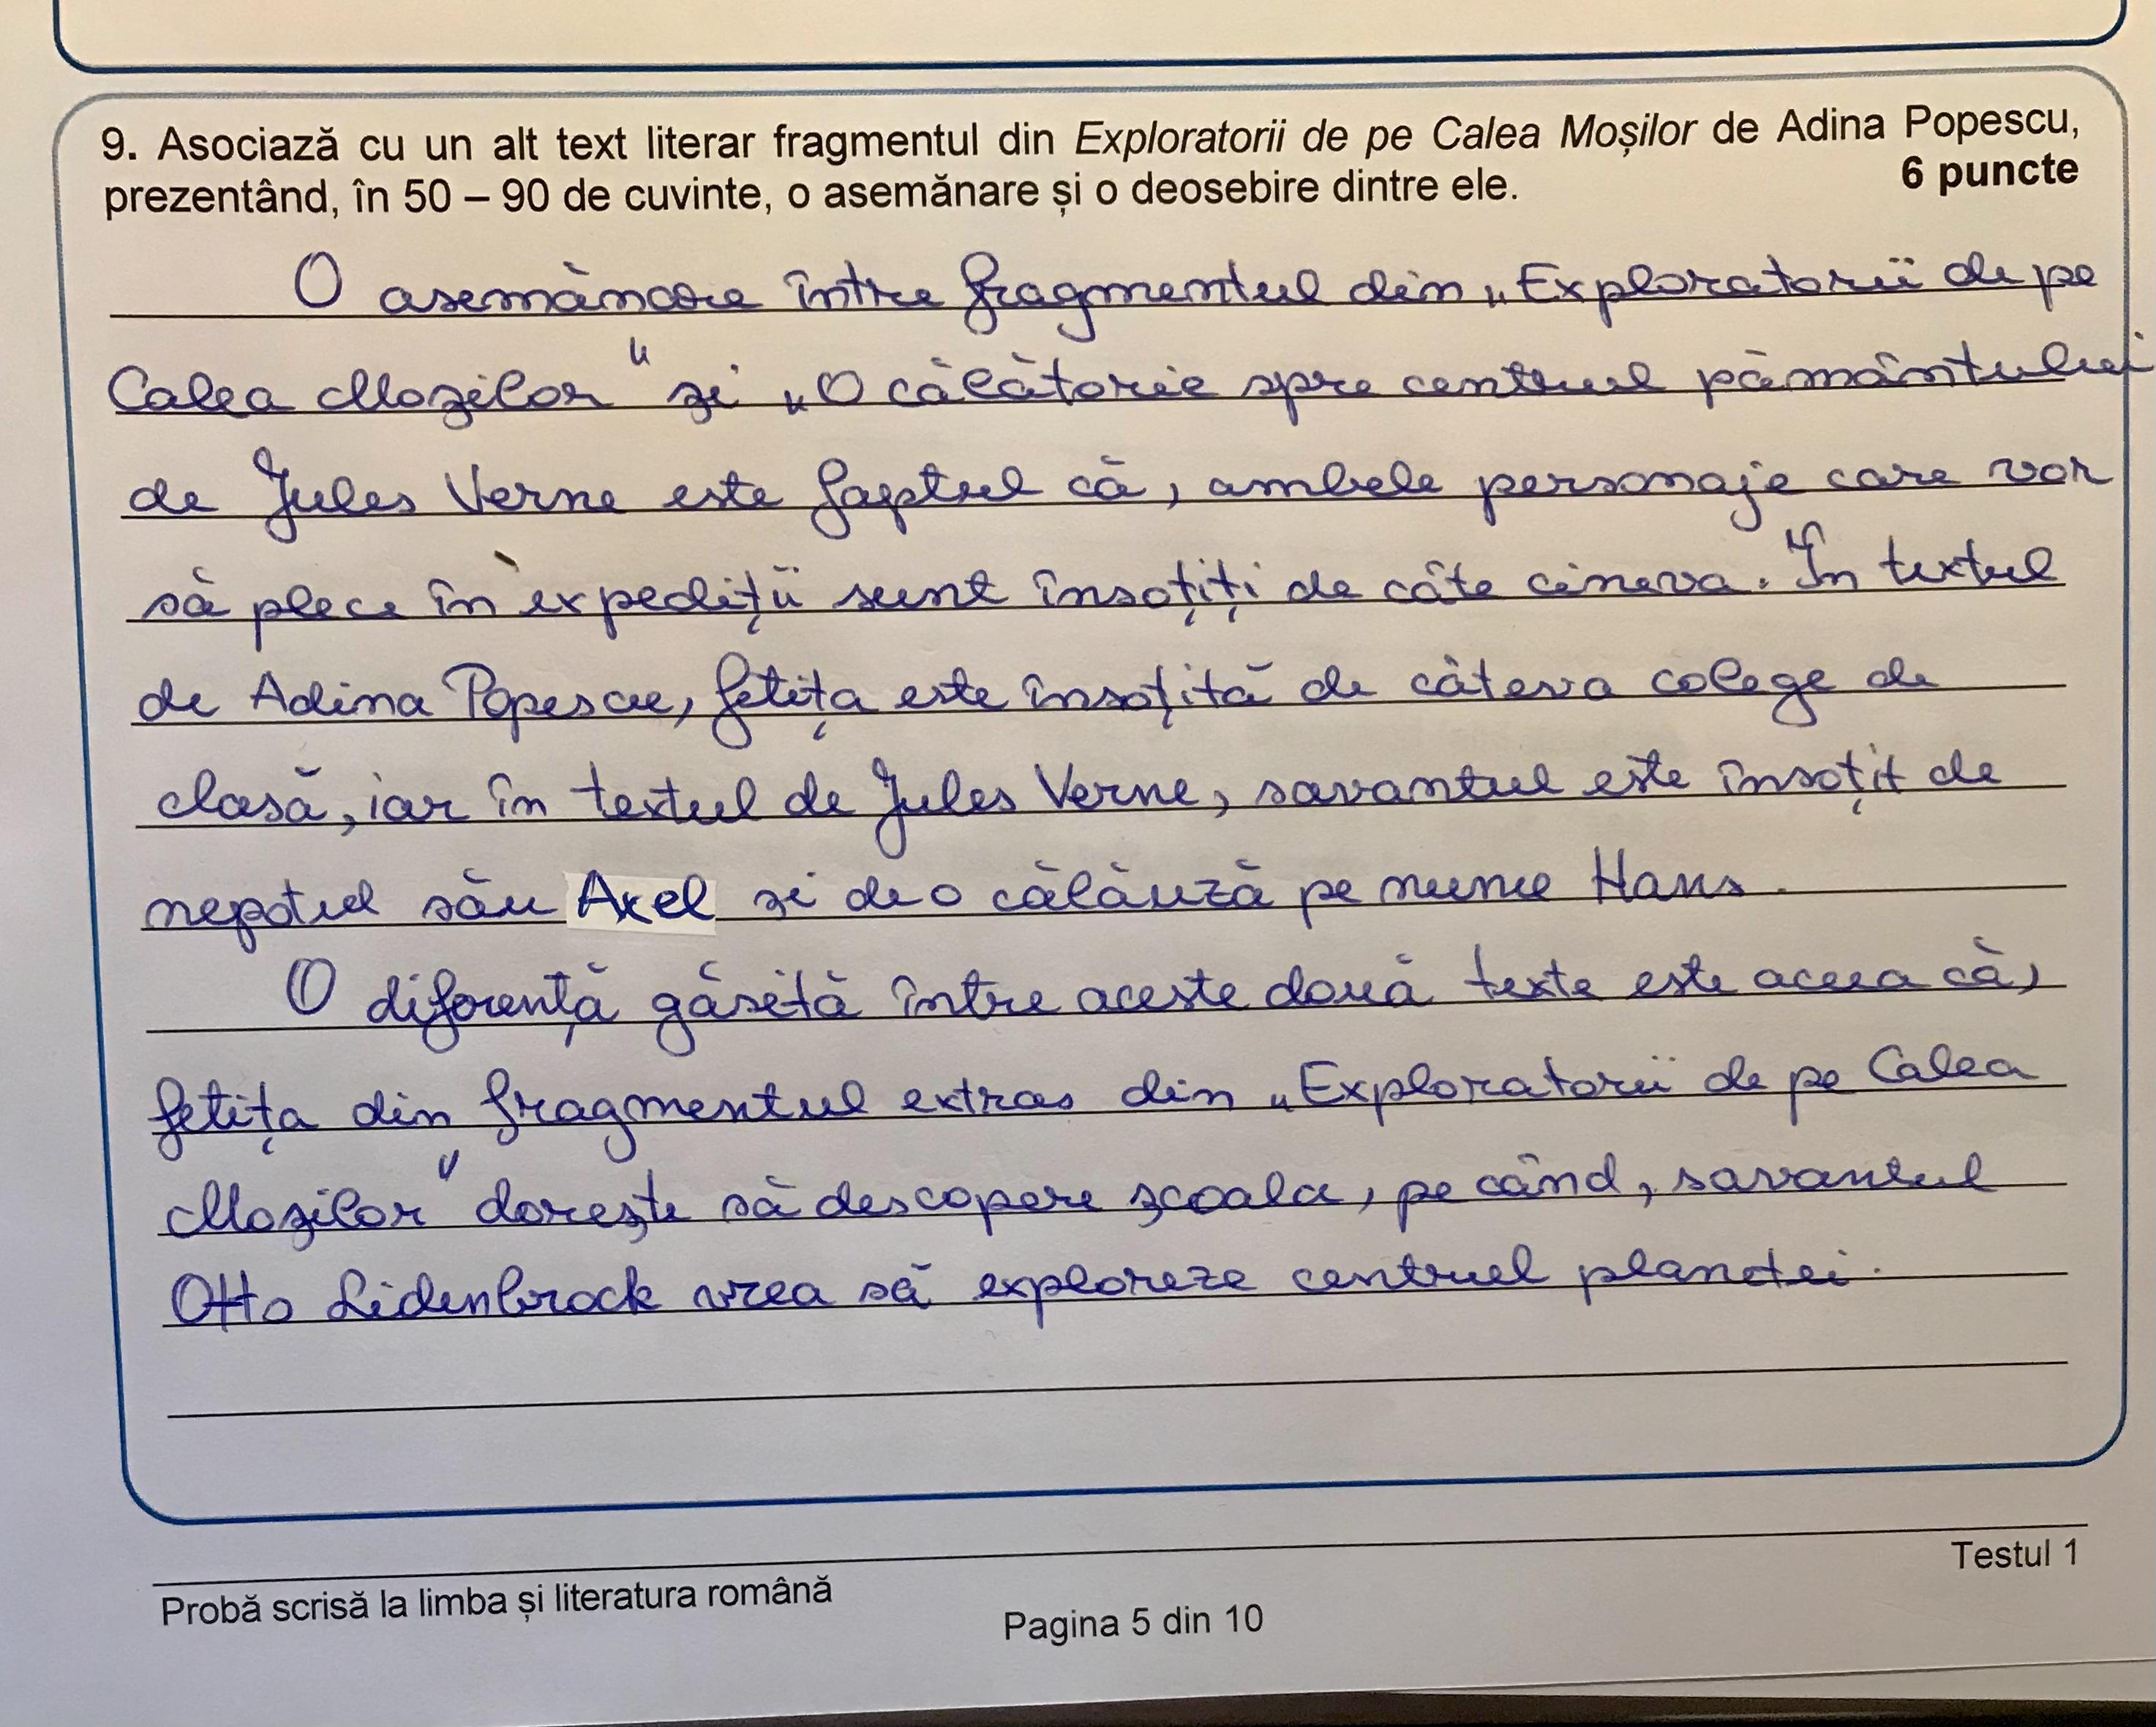 9. Asociază cu un alt text literar fragmentul din Exploratorii de pe Calea Moșilor de Adina Popescu,
prezentând, în 50 – 90 de cuvinte, o asemănare și o deosebire dintre ele. 6 puncte
O asemănare între fragmentul din „Exploratorii de pe
Calea Moșilor" și „O călătorie spre centrul pământului
de Jules Verne este faptul că, ambele personaje care vor
să plece în expediții sunt însoțiți de câte cineva. În textul
de Adina Popescu, fetița este însoțită de câteva colege de
clasă, iar în textul de Jules Verne, savantul este însoțit de
nepotul său Axel și de o călăuză pe nume Hans.
O diferență găsită între aceste două texte este aceea că,
fetița din fragmentul extras din „Exploratorii de pe Calea
Moșilor" dorește să descopere școala, pe când, savantul
Otto Lidenbrock vrea să exploreze centruel planetei.
Probă scrisă la limba și literatura română
Testul 1
Pagina 5 din 10